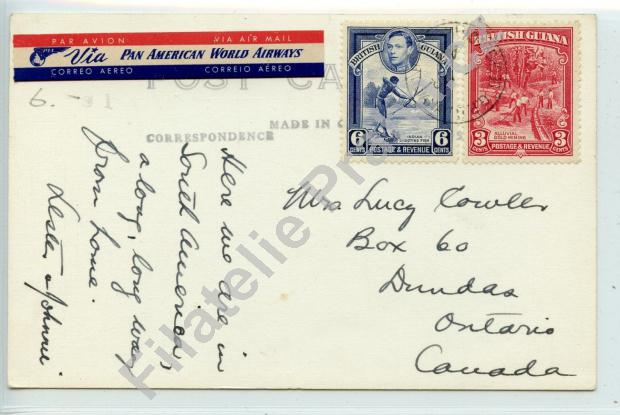 PAR AVION VIA AIR MAIL
Via PAN AMERICAN WORLD AIRWAYS
CORREO AEREO CORREIO AÉREO
POST CA
6. - 91
MADE IN
CORRESPONDENCE
Here we are in
South America,
a long, long way
from home.
Lester & Johnnie
BRITISH GUIANA
INDIAN SHOOTING FISH
6 CENTS POSTAGE & REVENUE 6 CENTS
BRITISH GUIANA
ALLUVIAL GOLD MINING
3 CENTS POSTAGE & REVENUE 3 CENTS
Mrs Lucy Cowler
Box 60
Dundas
Ontario
Canada
Filatelie Pra